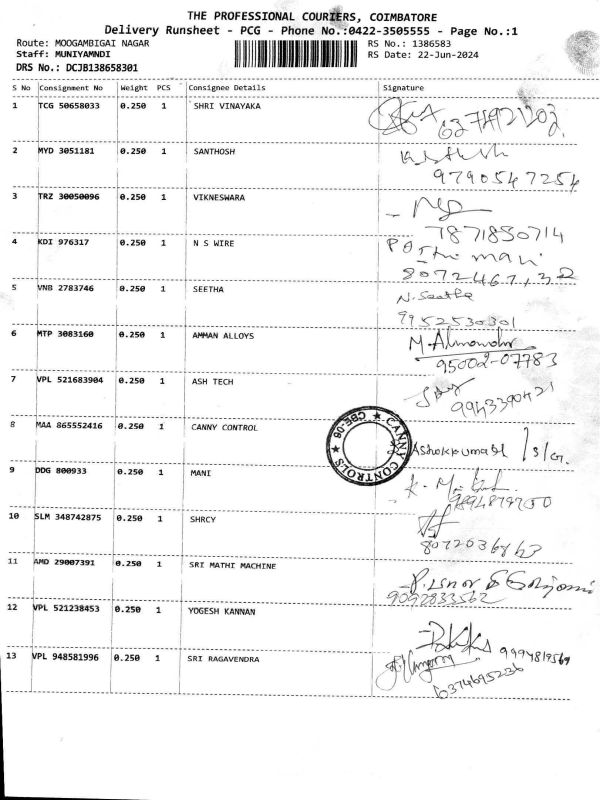 THE PROFESSIONAL COURIERS, COIMBATORE
Delivery Runsheet - PCG - Phone No.:0422-3505555 - Page No.:1
Route: MOOGAMBIGAI NAGAR RS No.: 1386583
Staff: MUNIYAMNDI RS Date: 22-Jun-2024
DRS No.: DCJB138658301
S No Consignment No Weight PCS Consignee Details Signature
1 TCG 50658033 0.250 1 SHRI VINAYAKA
2 MYD 3051181 0.250 1 SANTHOSH
9790547254
3 TRZ 30050096 0.250 1 VIKNESWARA
7871830714
4 KDI 976317 0.250 1 N S WIRE
5 VNB 2783746 0.250 1 SEETHA N. Seetha
9952530301
6 MTP 3083160 0.250 1 AMMAN ALLOYS
95002-07783
7 VPL 521683904 0.250 1 ASH TECH
9943390421
8 MAA 865552416 0.250 1 CANNY CONTROL Ashokkumar
CANNY CONTROLS ★ CBE-06 ★
9 DDG 800933 0.250 1 MANI
10 SLM 348742875 0.250 1 SHRCY
11 AMD 29007391 0.250 1 SRI MATHI MACHINE
9092833562
12 VPL 521238453 0.250 1 YOGESH KANNAN
13 VPL 948581996 0.250 1 SRI RAGAVENDRA 9994819569
6374695236